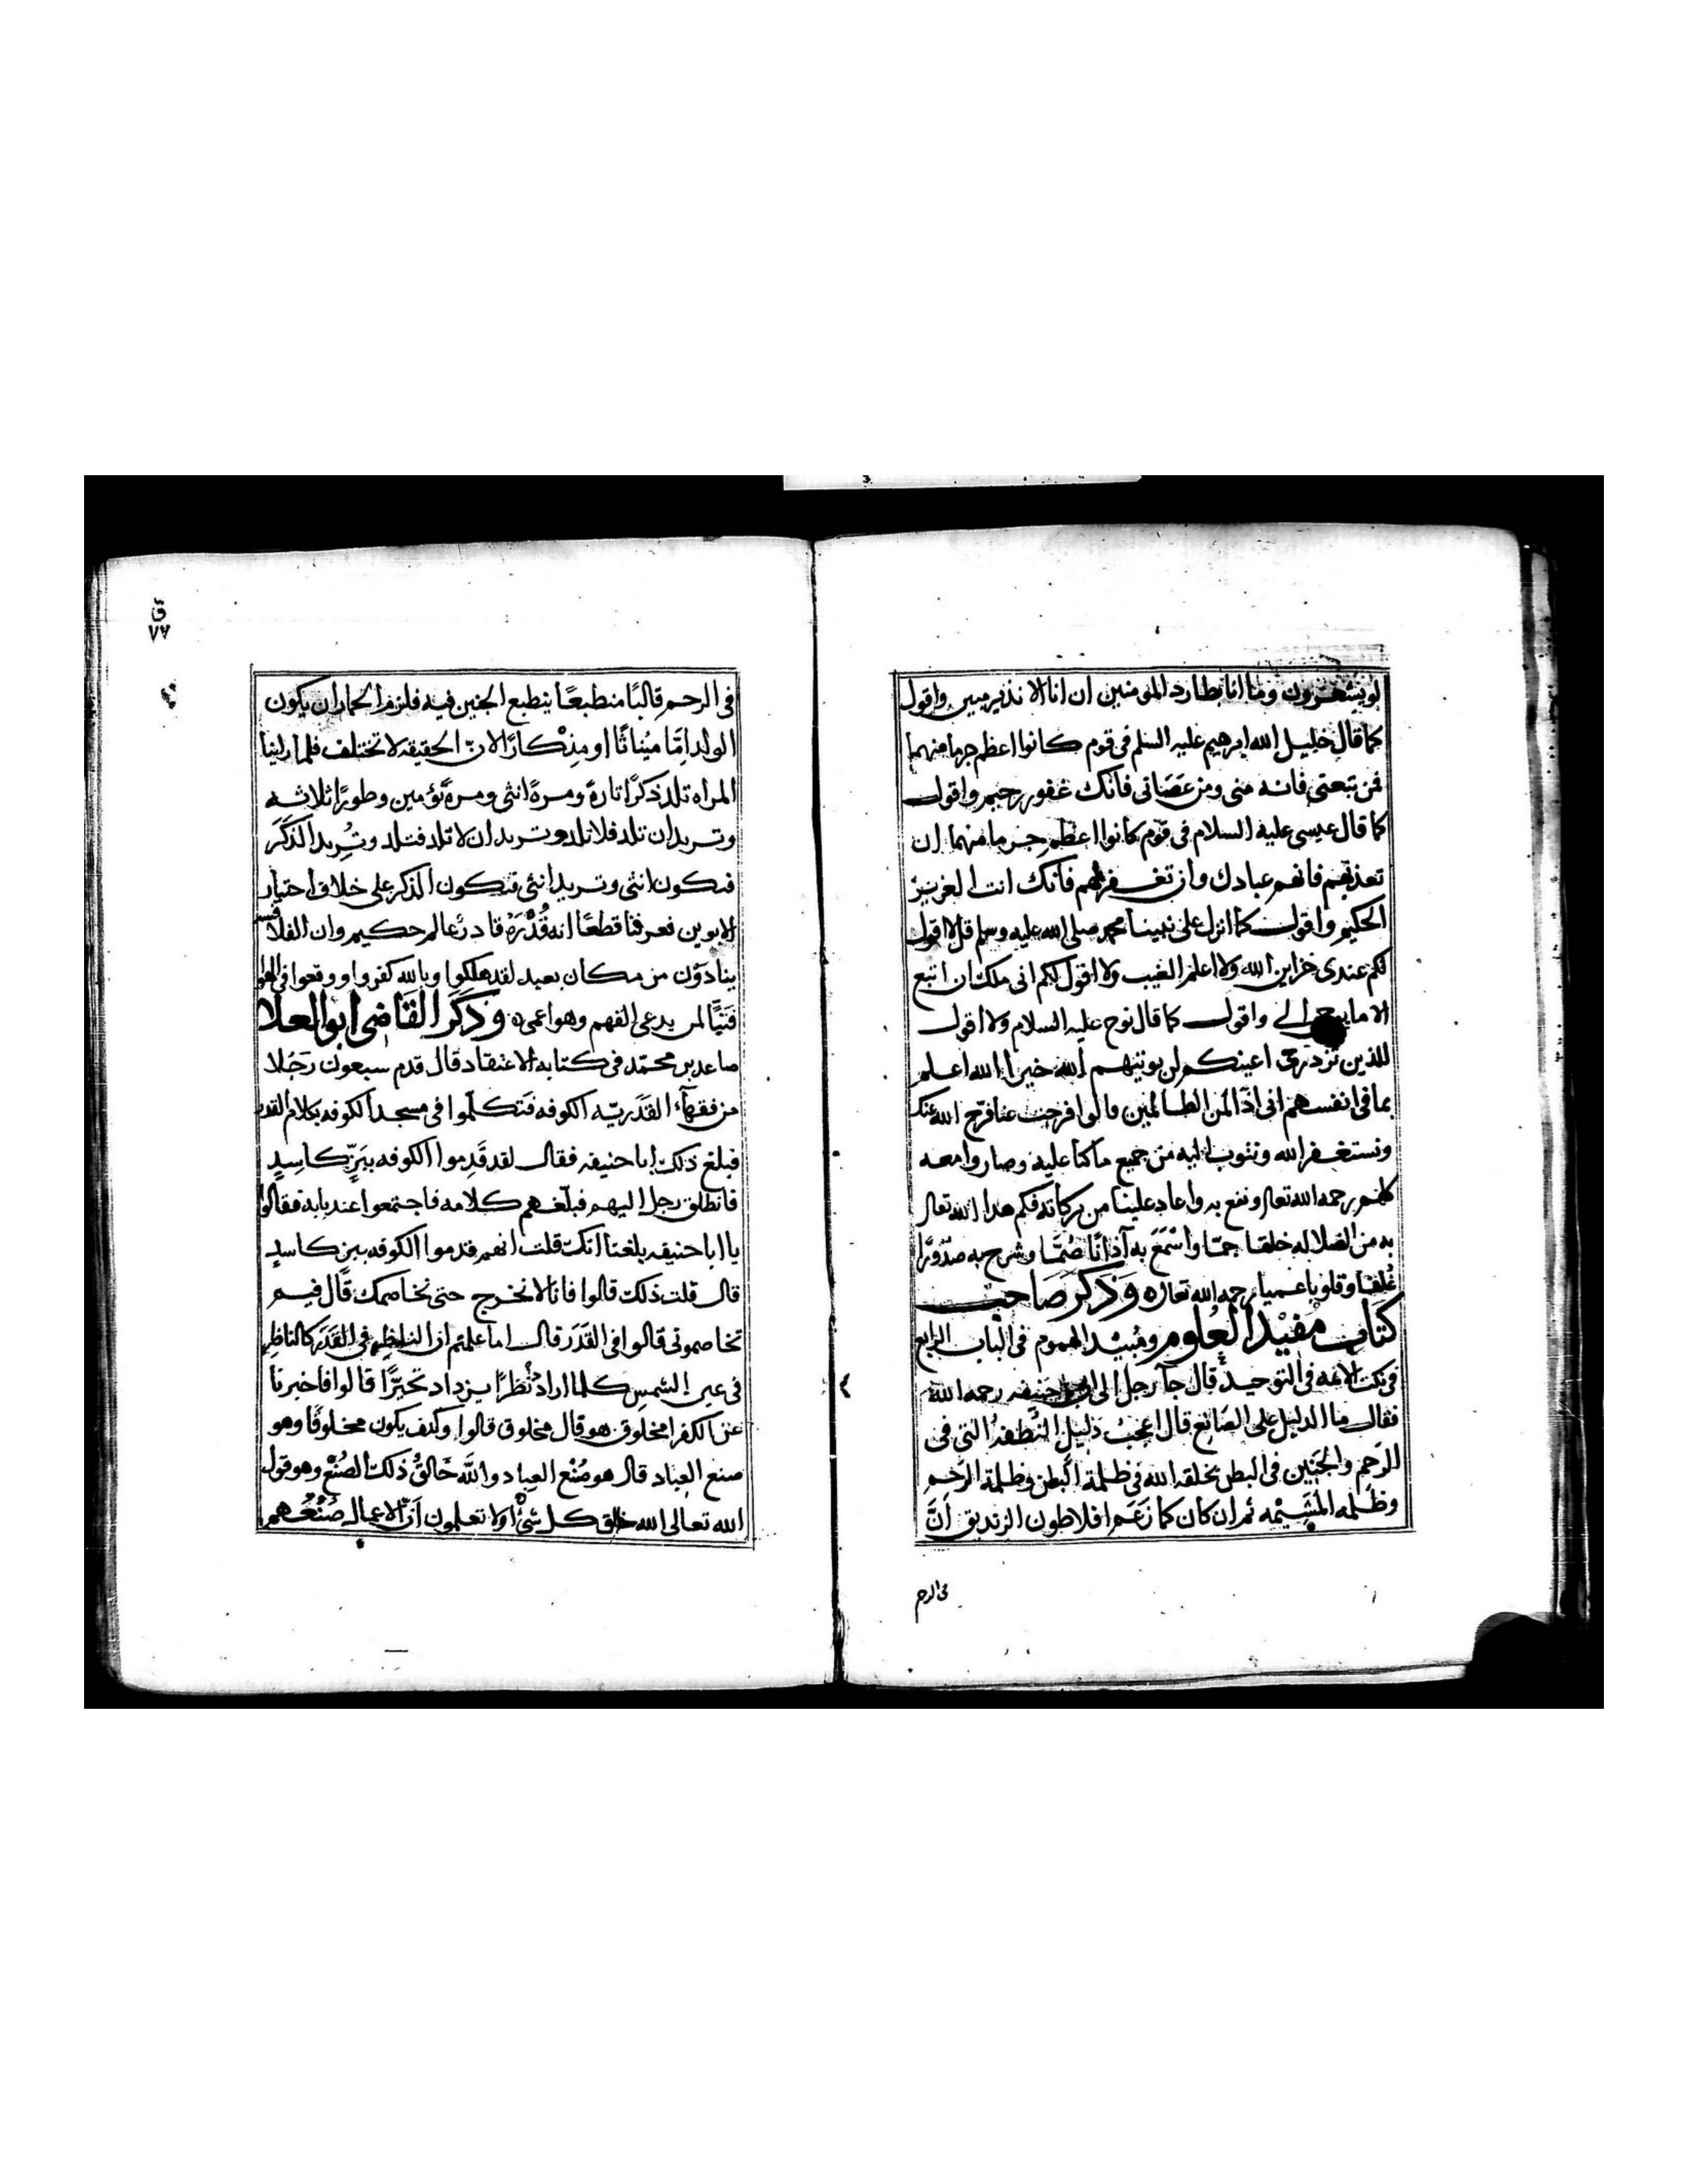 لو يشعرون وما انا بطارد المومنين ان انا الا نذير مبين واقول
كما قال خليل الله ابرهيم عليه السلم في قوم كانوا اعظم جرما منهما
فمن تبعني فانه مني ومن عصاني فانك غفور رحيم واقول
كما قال عيسى عليه السلام في قوم كانوا اعظم جرما منهما ان
تعذبهم فانهم عبادك وان تغفر لهم فانك انت العزيز
الحكيم واقول كما انزل على نبينا محمد صلى الله عليه وسلم قل لا اقول
لكم عندى خزاين الله ولا اعلم الغيب ولا اقول لكم انى ملك ان اتبع
الا ما يوحى الي واقول كما قال نوح عليه السلام ولا اقول
للذين تزدرى اعينكم لن يوتيهم الله خيرا الله اعلم
بما في انفسهم انى اذًا لمن الظالمين قالوا فرجت عنا فرج الله عنك
ونستغفر الله ونتوب اليه من جميع ما كنا عليه وصاروا معه
كلهم رحمه الله تعالى ونفع به واعاد علينا من بركاته فكم هدا الله تعالى
به من الضلاله خلقا جمّا واسْمَعَ به آذانًا صُمَّا وشرح به صدُورًا
غُلفا وقلوبا عميا رحمه الله تعالى ه وَذكرَ صَاحب
كتاب مفيْد العُلوم ومُبيد الهموم في الباب الرابع
في نكت الائمه في التوحيد قال جآ رجل الى ابى حنيفه رحمه الله
فقال ما الدليل على الصانع قال اعجبُ دليلٍ النُّطفة التى فى
الرَحم والجَنين فى البطن يخلقه الله فى ظلمة البطن وظلمة الرَحم
وظلمه المَشيمْه ثم ان كان كما زعَم افلاطون الزنديق اَنَّ
في الرحم
ق
٧٧
فى الرحم قالبًا منطبعًا ينطبع الجنين فيه فلزم الحمار ان يكون
الولد امّا ميْناثًا او مِذْكارًا لانّ الحقيقه لا تختلف فلما راينا
المراه تلد ذكرًا تارة ومرة انثى ومرة تؤمين وطورًا ثلاثه
وتريد ان تلد فلا تلد وتريد ان لا تلد فتلد وتُريد الذكَرَ
فتكون انثى وتريد انثى فتكون الذكر على خلاف اختيار
الابوين فعرفنا قطعًا انه قُدْرَة قادرٍ عالم حكيم وان الفلاسفه
ينادَوْن من مكان بعيد لقد هلكوا وبالله كفروا ووقعوا فى
فَتبًّا لمن يدعى الفهم وهو اعمى ه وذكر القَاضى ابوالعلا
صاعد بن محمّد فى كتابه الاعتقاد قال قدم سبعون رَجُلا
من فقهآء القَدَريّه الكوفه فتكلّموا فى مسجد الكوفه بكلام القدر
فبلغ ذلك ابا حنيفه فقال لقد قَدِموا الكوفه ببَزٍّ كاسِدٍ
فانطلق رجل اليهم فبلّغهم كلامه فاجتمعوا عند بابه فقالوا
يا ابا حنيفه بلغنا انك قلت انهم قدموا الكوفه ببز كاسدٍ
قال قلت ذلك قالوا فانا لا نخرج حتى نخاصمك قال فيم
تخاصمونى قالوا فى القدَر قال اما علمتم ان الناظر فى القَدَر كالناظِر
فى عين الشمس كلما اراد نَظرًا يزداد تحيّرًا قالوا فاخبرنا
عن الكفر مخلوق هو قال مخلوق قالوا وكيف يكون مخلوقًا وهو
صنع العباد قال هو صُنْع العِباد والله خَالقُ ذلك الصُنْع وهو قول
الله تعالى الله خالق كل شئ اوَلا تعلمون اَنّ الاعمال صُنْعُهم